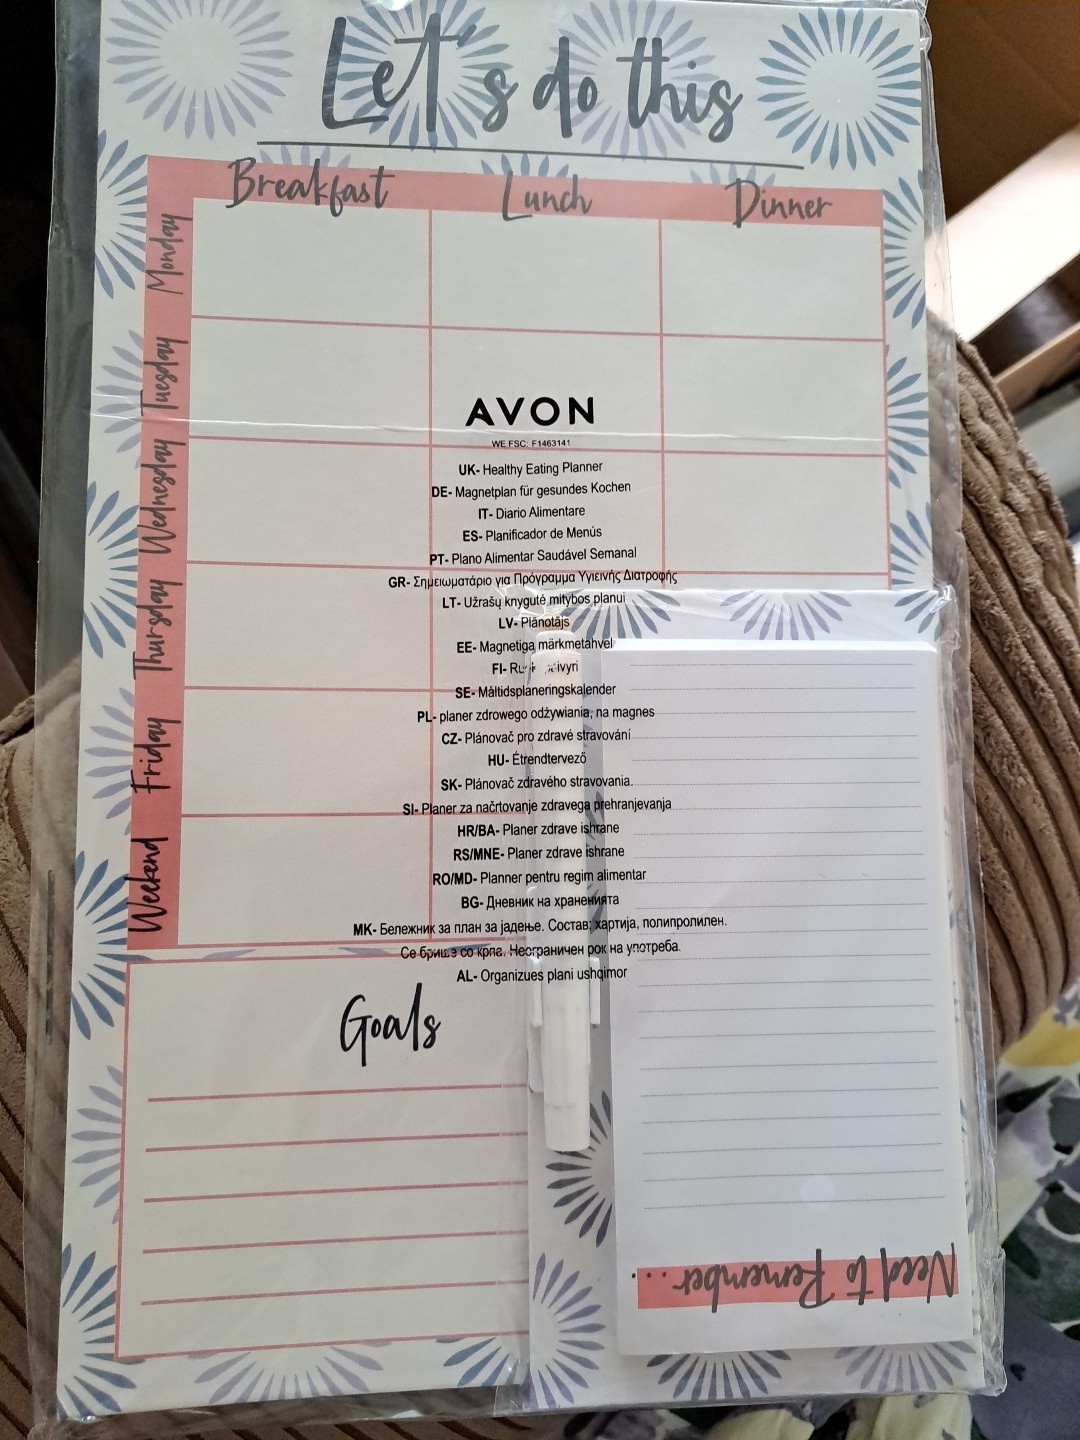 Let's do this
Breakfast Lunch Dinner
Monday
Tuesday
Wednesday
Thursday
Friday
Weekend
AVON
WE FSC: F1463141
UK- Healthy Eating Planner
DE- Magnetplan für gesundes Kochen
IT- Diario Alimentare
ES- Planificador de Menús
PT- Plano Alimentar Saudável Semanal
GR- Σημειωματάριο για Πρόγραμμα Υγιεινής Διατροφής
LT- Užrašų knygutė mitybos planui
LV- Plānotājs
EE- Magnetiga märkmetahvel
FI-
SE- Måltidsplaneringskalender
PL- planer zdrowego odżywiania, na magnes
CZ- Plánovač pro zdravé stravování
HU- Étrendtervező
SK- Plánovač zdravého stravovania.
SI- Planer za načrtovanje zdravega prehranjevanja
HR/BA- Planer zdrave ishrane
RS/MNE- Planer zdrave ishrane
RO/MD- Planner pentru regim alimentar
BG- Дневник на храненията
MK- Бележник за план за јадење. Состав: хартија, полипропилен.
Се брише со крпа. Неограничен рок на употреба.
AL- Organizues plani ushqimor
Goals
Need to Remember...